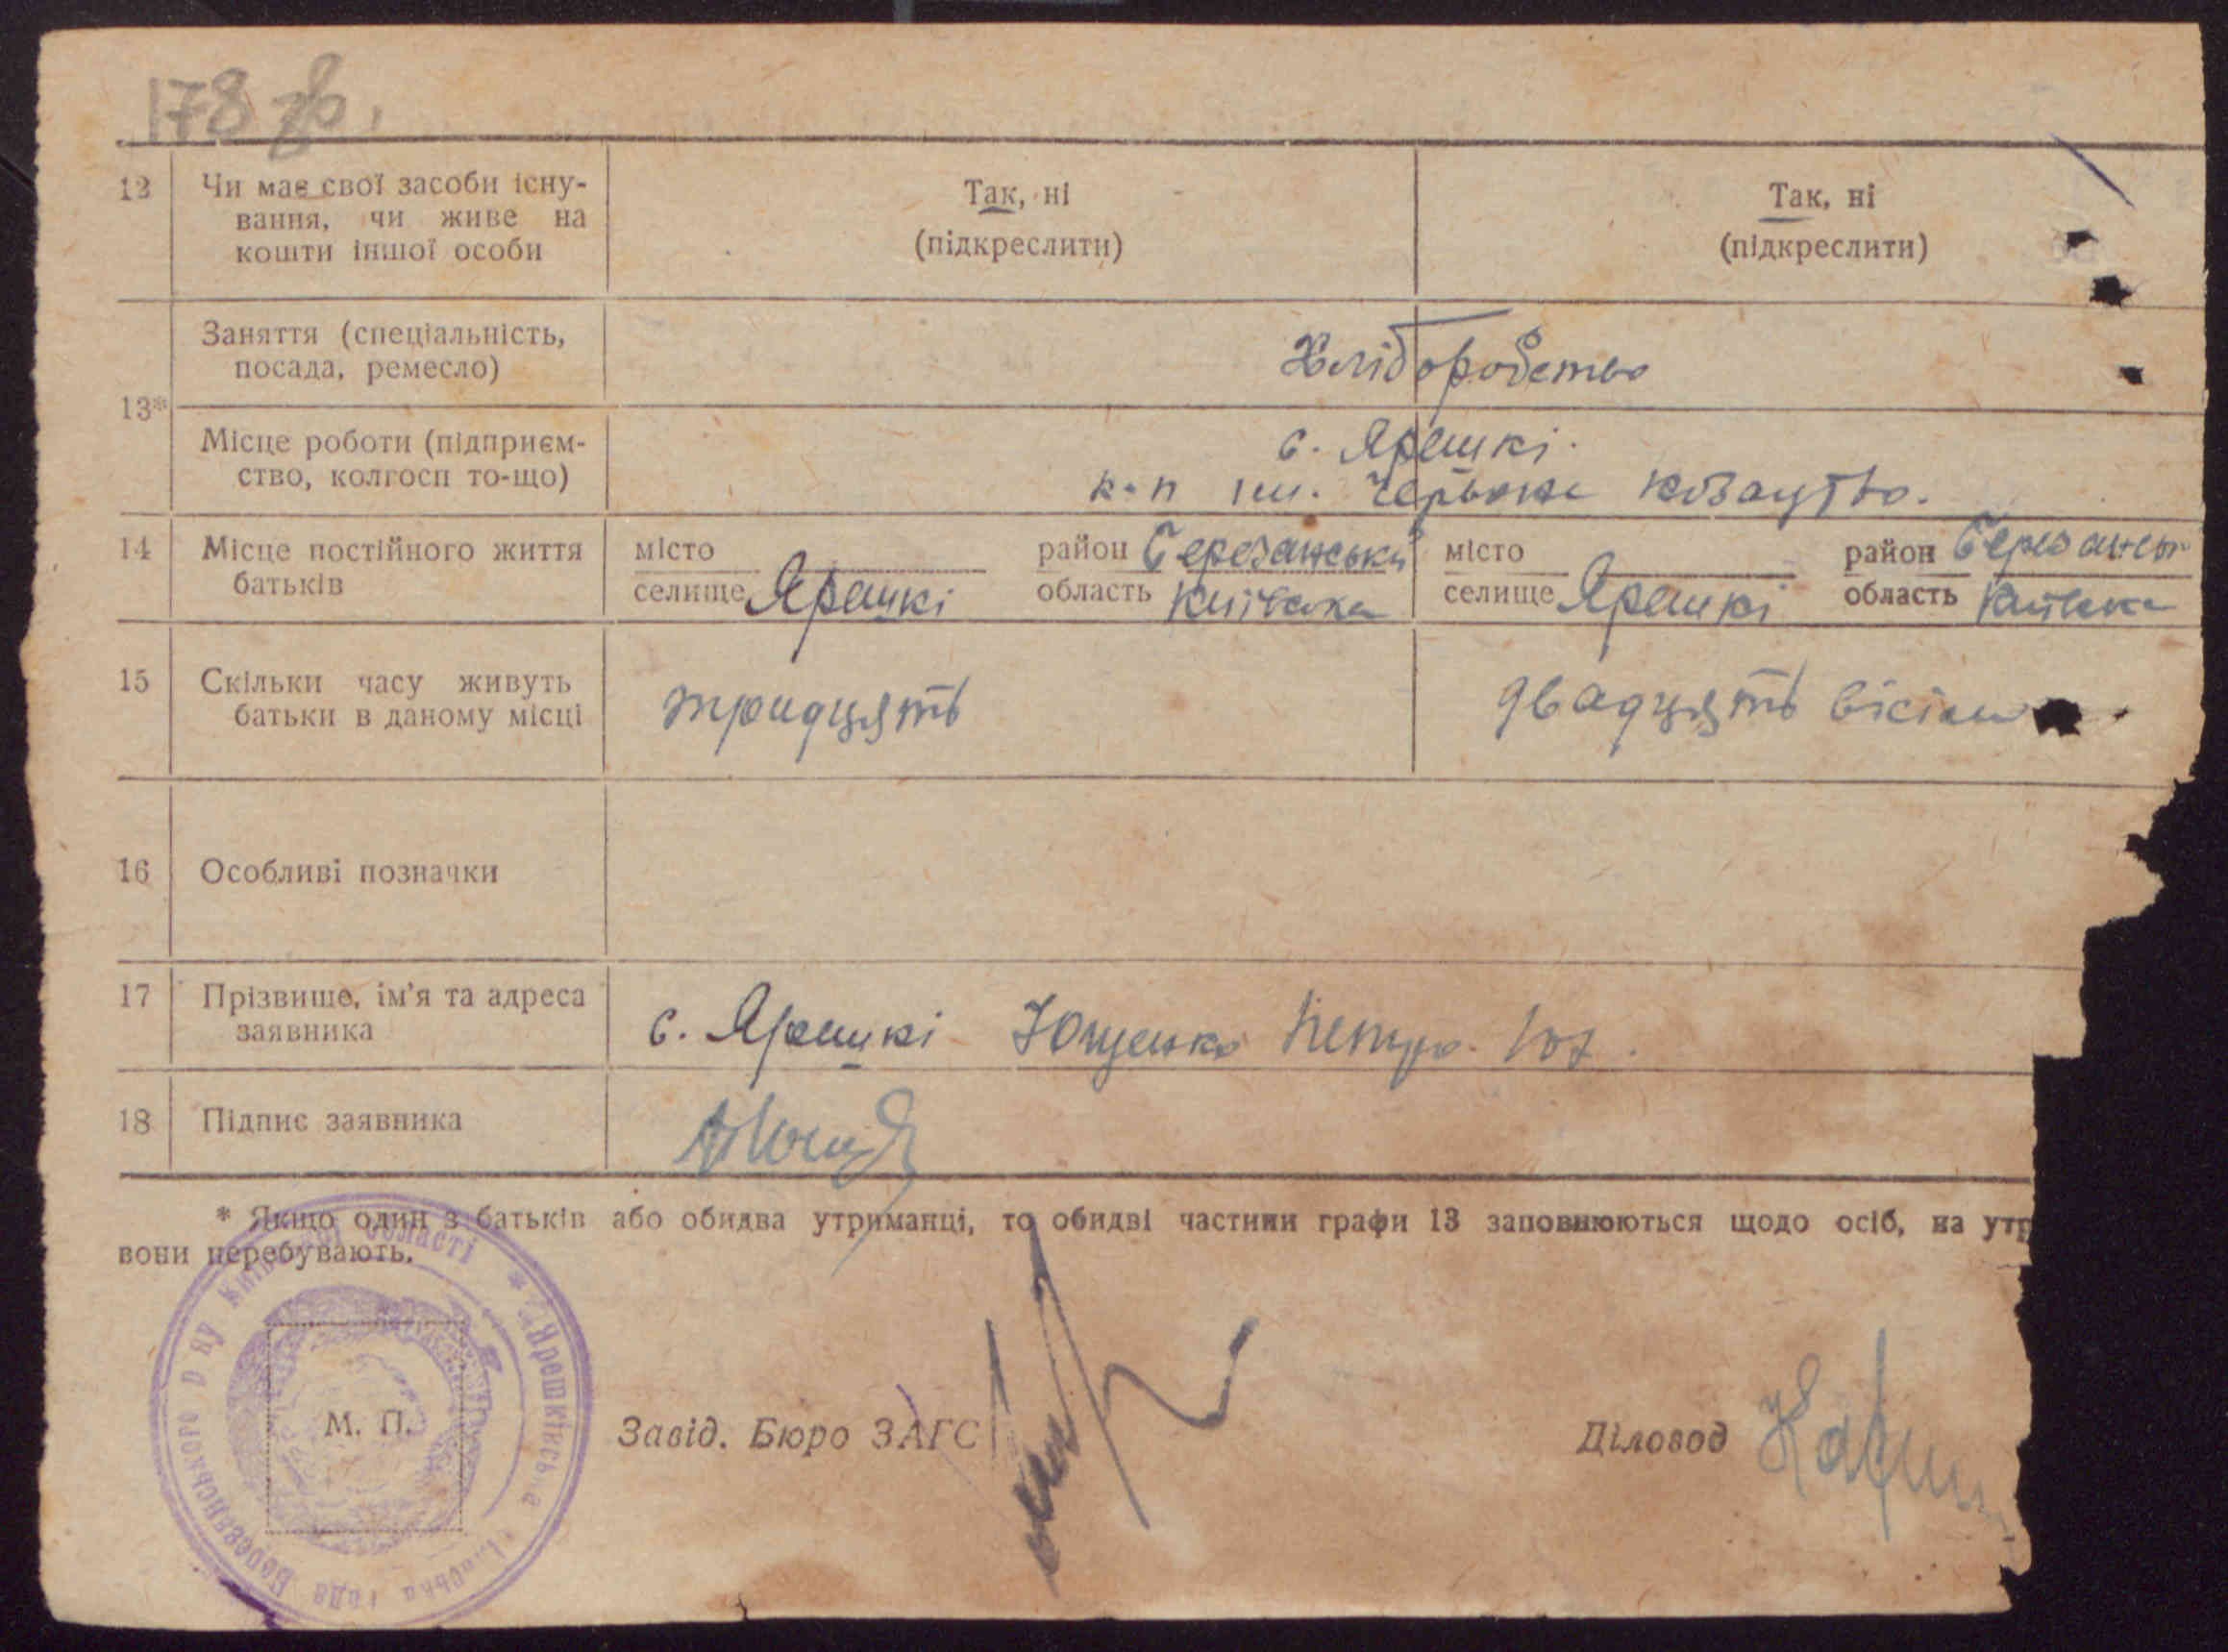 178 зв.
12 Чи має свої засоби існу-
вання, чи живе на
кошти іншої особи
Так, ні
(підкреслити)
Так, ні
(підкреслити)
13*
Заняття (спеціальність,
посада, ремесло)
Хліборобство
Місце роботи (підприєм-
ство, колгосп то-що)
с. Ярешкі.
к-п ім. Червоне козацтво.
14 Місце постійного життя
батьків
місто
селище Ярешкі
район Березанський
область Київська
місто
селище Ярешкі
район
область
15 Скільки часу живуть
батьки в даному місці
тридцять
двадцять вісім
16 Особливі позначки
17 Прізвище, ім'я та адреса
заявника
с. Ярешкі Ющенко Петро.
18 Підпис заявника
* Якщо один з батьків або обидва утриманці, то обидві частини графи 13 заповнюються щодо осіб, на утр
вони перебувають.
області * Ярешківська рада Березанського
М. П.
Завід. Бюро ЗАГС
Діловод